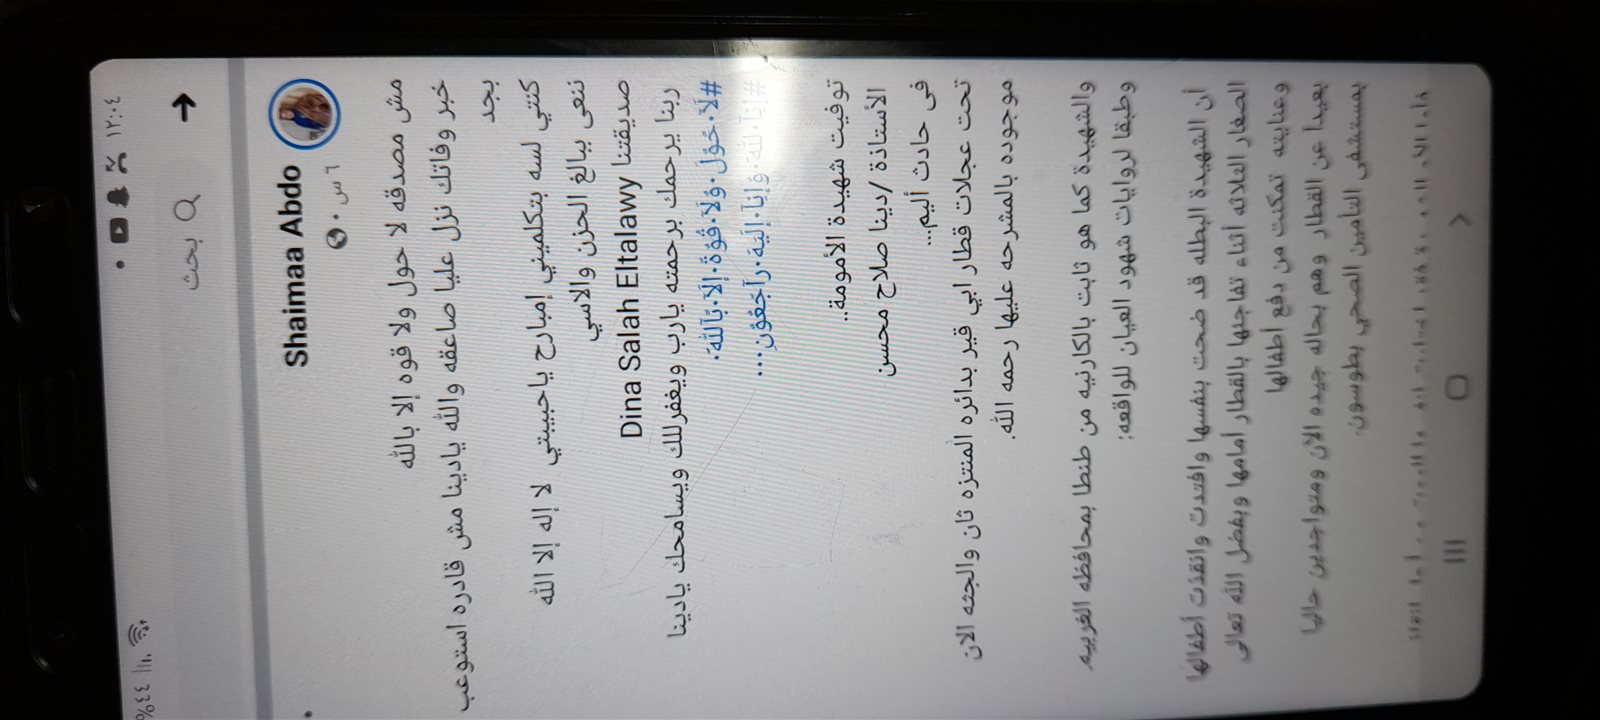 ١٢:٠٤
٤٤%
بحث
Shaimaa Abdo
٦ س ·
مش مصدقه لا حول ولا قوه إلا بالله
خبر وفاتك نزل عليا صاعقه والله يادينا مش قادره استوعب
بجد
كنتي لسه بتكلميني إمبارح ياحبيبتي لا إله إلا الله
ننعى ببالغ الحزن والاسي
صديقتنا Dina Salah Eltalawy
ربنا يرحمك برحمته يارب ويغفرلك ويسامحك يادينا
#لَا۰حَوْلَ۰وَلَا۰قُوَّةَ۰إِلَّا۰بِاللَّهِ۰
#إِنَّا۰لِلَّهِ۰وَإِنَّا۰إِلَيْهِ۰رَاجِعُونَ...
توفيت شهيدة الأمومة..
الأستاذة /دينا صلاح محسن
فى حادث أليم...
تحت عجلات قطار ابي قير بدائره المنتزه تان والجثه الان
موجوده بالمشرحه عليها رحمه الله.
والشهيدة كما هو ثابت بالكارنيه من طنطا بمحافظه الغربيه.
وطبقا لروايات شهود العيان للواقعه:
أن الشهيدة البطله قد ضحت بنفسها وافتدت وانقذت أطفالها
الصغار الثلاثه أثناء تفاجئها بالقطار أمامها وبفضل الله تعالى
وعنايته تمكنت من دفع أطفالها
بعيدا عن القطار وهم بحاله جيده الآن ومتواجدين حاليا
بمستشفى التأمين الصحي بطوسون.